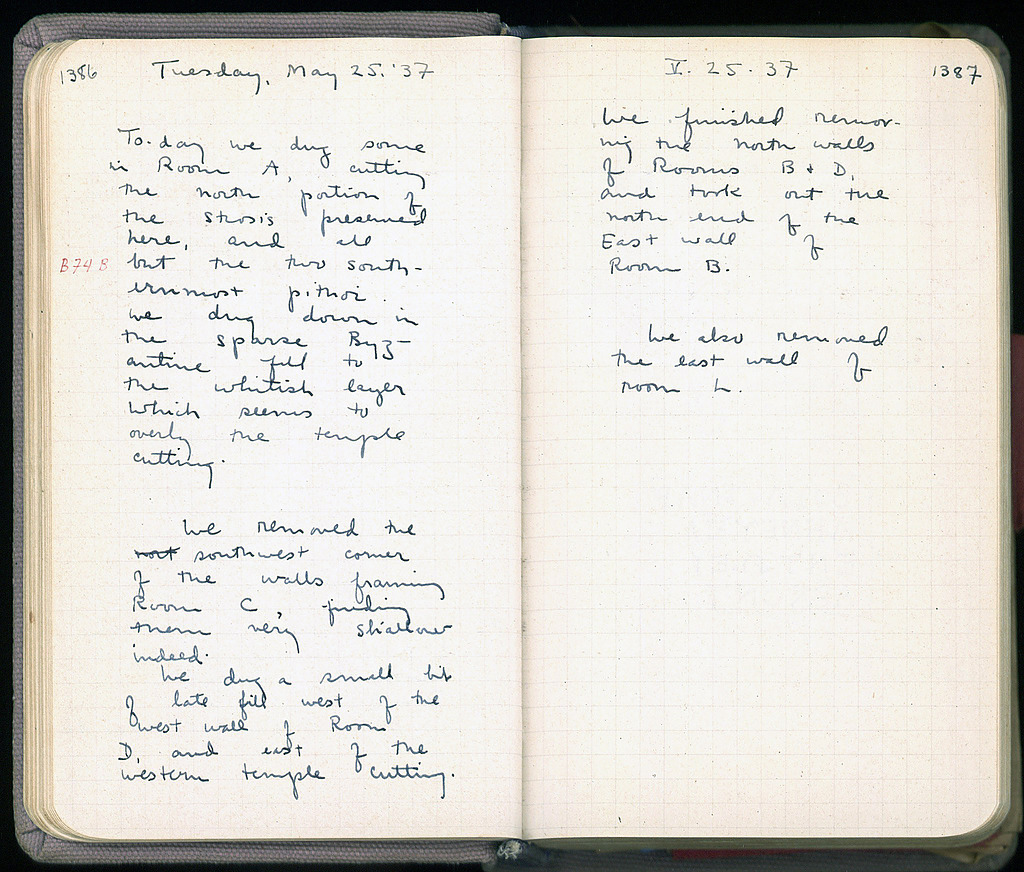 1386 Tuesday, May 25. '37
To-day we dug some
in Room A, cutting
the north portion of
the strosis preserved
here, and all
B74 B but the two south-
ernmost pithoi.
We dug down in
the sparse Byz-
antine fill to
the whitish layer
which seems to
overly the temple
cutting.
We removed the
nort southwest corner
of the walls framing
Room C, finding
them very shallow
indeed.
We dug a small bit
of late fill west of the
west wall of Room
D, and east of the
western temple cutting.
V. 25. 37 1387
We finished remov-
ing the north walls
of Rooms B + D,
and took out the
north end of the
East wall of
Room B.
We also removed
the east wall of
room L.